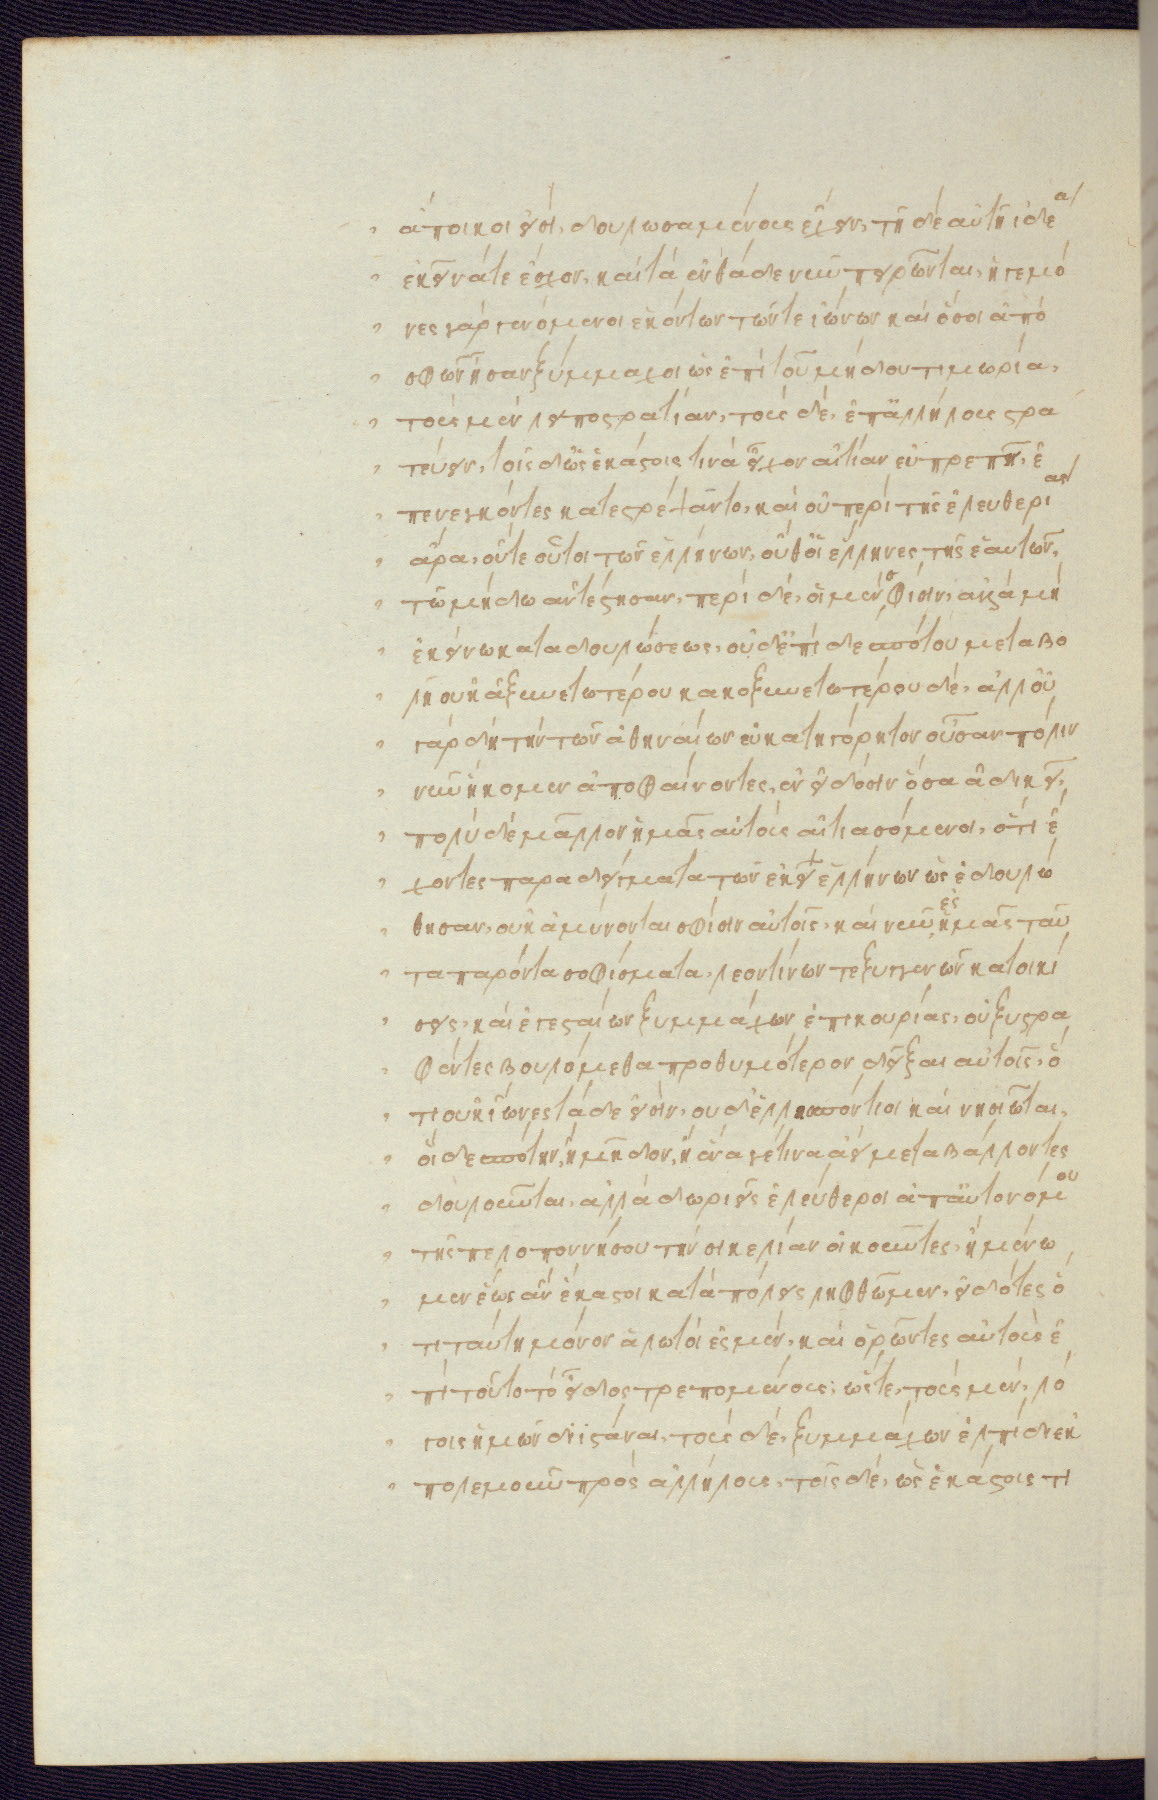 ἄποικοι εἰσί, δουλωσαμένους ἔχειν, τῆ δέ αὐτῆ ἰδέα
ἐκεῖνά τε ἔσχον, καί τά ἐνθάδε νῦν πειρῶνται, ἡγεμό
νες γάρ γενόμενοι ἑκόντων τῶν τε ἰώνων καί ὅσοι ἀπό
σφῶν ἦσαν ξύμμαχοι ὡς ἐπί τοῦ μήδου τιμωρία,
τούς μέν λειποστρατίαν, τούς δέ, ἐπ' ἀλλήλους στρα
τεύειν, τοῖς δ' ὡς ἑκάστοις τινά εἶχον αἰτίαν εὐπρεπῆ, ἐ
πενεγκόντες κατεστρέψαντο, καί οὐ περί τῆς ἐλευθερίας
ἄρα, οὔτε οὗτοι τῶν ἑλλήνων, οὔθ' οἱ ἕλληνες τῆς ἑαυτῶν,
τῶ μήδω ἀντέστησαν, περί δέ, οἱ μέν σφίσιν, ἀλλά μή
ἐκείνω καταδουλώσεως, οἱ δ' ἐπί δεσπότου μεταβο
λῆ οὐκ ἀξυνετωτέρου κακοξυνετωτέρου δέ, ἀλλ' οὐ
γάρ δή τήν τῶν ἀθηναίων εὐκατηγόρητον οὖσαν πόλιν
νῦν ἥκομεν ἀποφαίνοντες, ἐν εἰδόσιν ὅσα ἀδικεῖ,
πολύ δέ μᾶλλον ἡμᾶς αὐτούς αἰτιασόμενοι, ὅτι ἔ
χοντες παραδείγματα τῶν ἐκεῖ ἑλλήνων ὡς ἐδουλώ
θησαν, οὐκ ἀμύνοντες σφίσιν αὐτοῖς, καί νῦν ἐς ἡμᾶς ταῦ
τα παρόντα σοφίσματα, λεοντίνων τε ξυγγενῶν κατοικί
σεις, καί ἐγεσταίων ξυμμάχων ἐπικουρίας, οὐ ξυστρα
φέντες βουλόμεθα προθυμότερον δεῖξαι αὐτοῖς, ὅ
τι οὐκ ἴωνες τάδε εἰσίν, ουδ' ἑλλησπόντιοι καί νησιῶται,
οἵ δεσπότην, ἤ μῆδον, ἤ ἕνα γέ τινα ἀεί μεταβάλλοντες
δουλοῦνται, ἀλλά δωριεῖς ἐλεύθεροι ἀπ' αὐτονόμου
τῆς πελοποννήσου τήν σικελίαν οἰκοῦντες, ἤ μένω
μεν ἕως ἄν ἕκαστοι κατά πόλεις ληφθῶμεν, εἰδότες ὅ
τι ταύτη μόνον ἁλωτοί ἐσμέν, καί ὁρῶντες αὐτούς ἐ
πί τοῦτο τό εἶδος τρεπομένους, ὥστε, τούς μέν, λό
γοις ἡμῶν διϊστάναι, τούς δέ, ξυμμάχων ἐλπίδι ἐκ
πολεμοῦν πρός ἀλλήλους, τοῖς δέ, ὡς ἑκάστοις τι